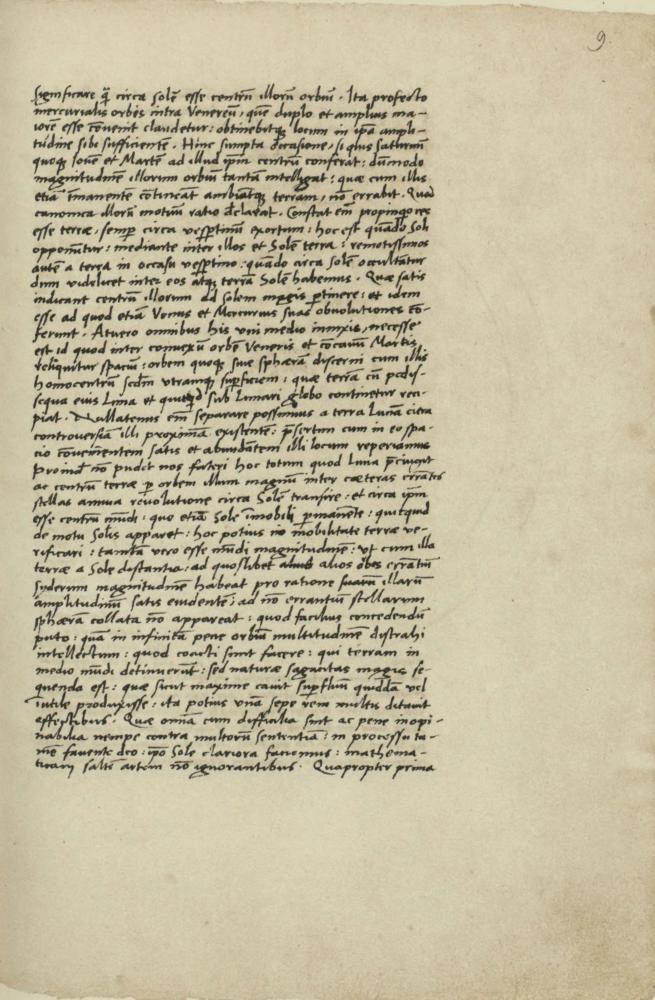 9.
significare q̃ circa solē esse centrū illorū orbiū. Ita profecto
mercurialis orbis intra Venereū, quē duplo et amplius ma-
iorē esse cōuenit claudetur: obtinebitqȝ locum in ipa ampli-
tudine sibi sufficientē. Hinc sumpta occasione, si qius Saturnū
quoqȝ Iouē et Martē ad illud ipm centrū conferat: dūmodo
magnitudinē illorum orbiū tantā intelligat: quæ cum illis
etiā īmanentē cōtineat ambiatqȝ terram, nō errabit. Quod
canonica illorū motuū ratio declarat. Constat em̄ propinq̄ores
esse terræ, semp circa vesptinū exortum: hoc est quādo Soli
opponūtur: mediante inter illos et Solē terra: remotissimos
autē a terra in occasu vesptino: quādo circa solē occultātur
dum videlicet inter eos atqȝ terrā Solē habemus. Quæ satis
indicant centrū illorum ad solem magis ptinere: et idem
esse ad quod etiā Venus et Mercurius suas obuolutiones cō-
ferunt. Atuero omnibus his vni medio innixis, necesse
est id quod inter conuexū orbē Veneris et cōcauū Martis
relīquitur spaciū: orbem quoqȝ siue sphærā discerni cum illis
homocentrū scdm utramqȝ supficiem: quæ terrā cū pedis-
sequa eius Luna et quicqd sub Lunari globo continetur reci-
piat. Nullatenus em̄ separare possumus a terra Lunā citra
controuersiā illi proximā existentē: psertim cum in eo spa-
cio cōuenientem satis et abundātem illi locum reperiamus
Proind nō pudet nos fateri hoc totum quod Luna p̄cingit
ac centrū terræ p orbem illum magnū inter cæteras errātes
stellas annua reuolutione circa Solē transire: et circa ipm
esse centrū mūdi: quo etiā Sole īmobili pmanente: quicquid
de motu Solis apparet: hoc potius in mobilitate terræ ve-
rificari: tantā vero esse mūdi magnitudinē: vt cum illa
terræ a Sole distantia: ad quoslibet alios orbes erratiū
syderum magnitudinē habeat pro ratione suarū illarū
amplitudinū satis euidentē: ad nō errantiū stellarum
sphæra collata nō appareat: quod facilius concedendū
puto: quā in infinitā pene orbiū multitudinē distrahi
intellectum: quod coacti sunt facere: qui terram in
medio mūdi detinuerūt: sed naturæ sagacitas magis se-
quenda est: quæ sicut maxime cauit supfluū quiddā vel
īutile produxisse: ita potius vnā sepe rem multis ditauit
effectibus. Quæ omīa cum difficilia sint ac pene inopi-
nabilia nempe contra multorū sententiā: in processu ta-
mē fauente deo: ipo Sole clariora faciemus: mathema-
ticam saltē artem nō ignorantibus. Quapropter prima